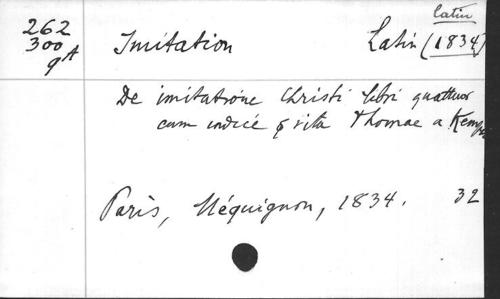 latin
262 Imitation Latin (1834)
300
qA
De imitatione Christi libri quattuor
cum indice & vita Thomae a Kempis
Paris, Méquignon, 1834. 32